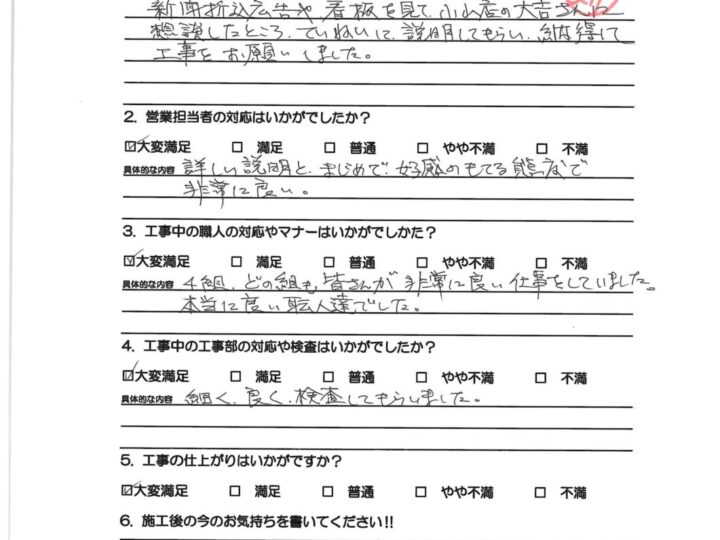 新聞折込広告や、看板を見て、小山店の大吉さんに
相談したところ、ていねいに、説明してもらい、納得して
工事をお願いしました。
2. 営業担当者の対応はいかがでしたか？
☑大変満足 □ 満足 □ 普通 □ やや不満 □ 不満
具体的な内容 詳しい説明と、まじめで、好感のもてる態度で
非常に良い。
3. 工事中の職人の対応やマナーはいかがでしかた？
☑大変満足 □ 満足 □ 普通 □ やや不満 □ 不満
具体的な内容 4組、どの組も皆さんが非常に良い仕事をしていました。
本当に良い職人達でした。
4. 工事中の工事部の対応や検査はいかがでしたか？
☑大変満足 □ 満足 □ 普通 □ やや不満 □ 不満
具体的な内容 細く、良く、検査してもらいました。
5. 工事の仕上がりはいかがですか？
☑大変満足 □ 満足 □ 普通 □ やや不満 □ 不満
6. 施工後の今のお気持ちを書いてください!!